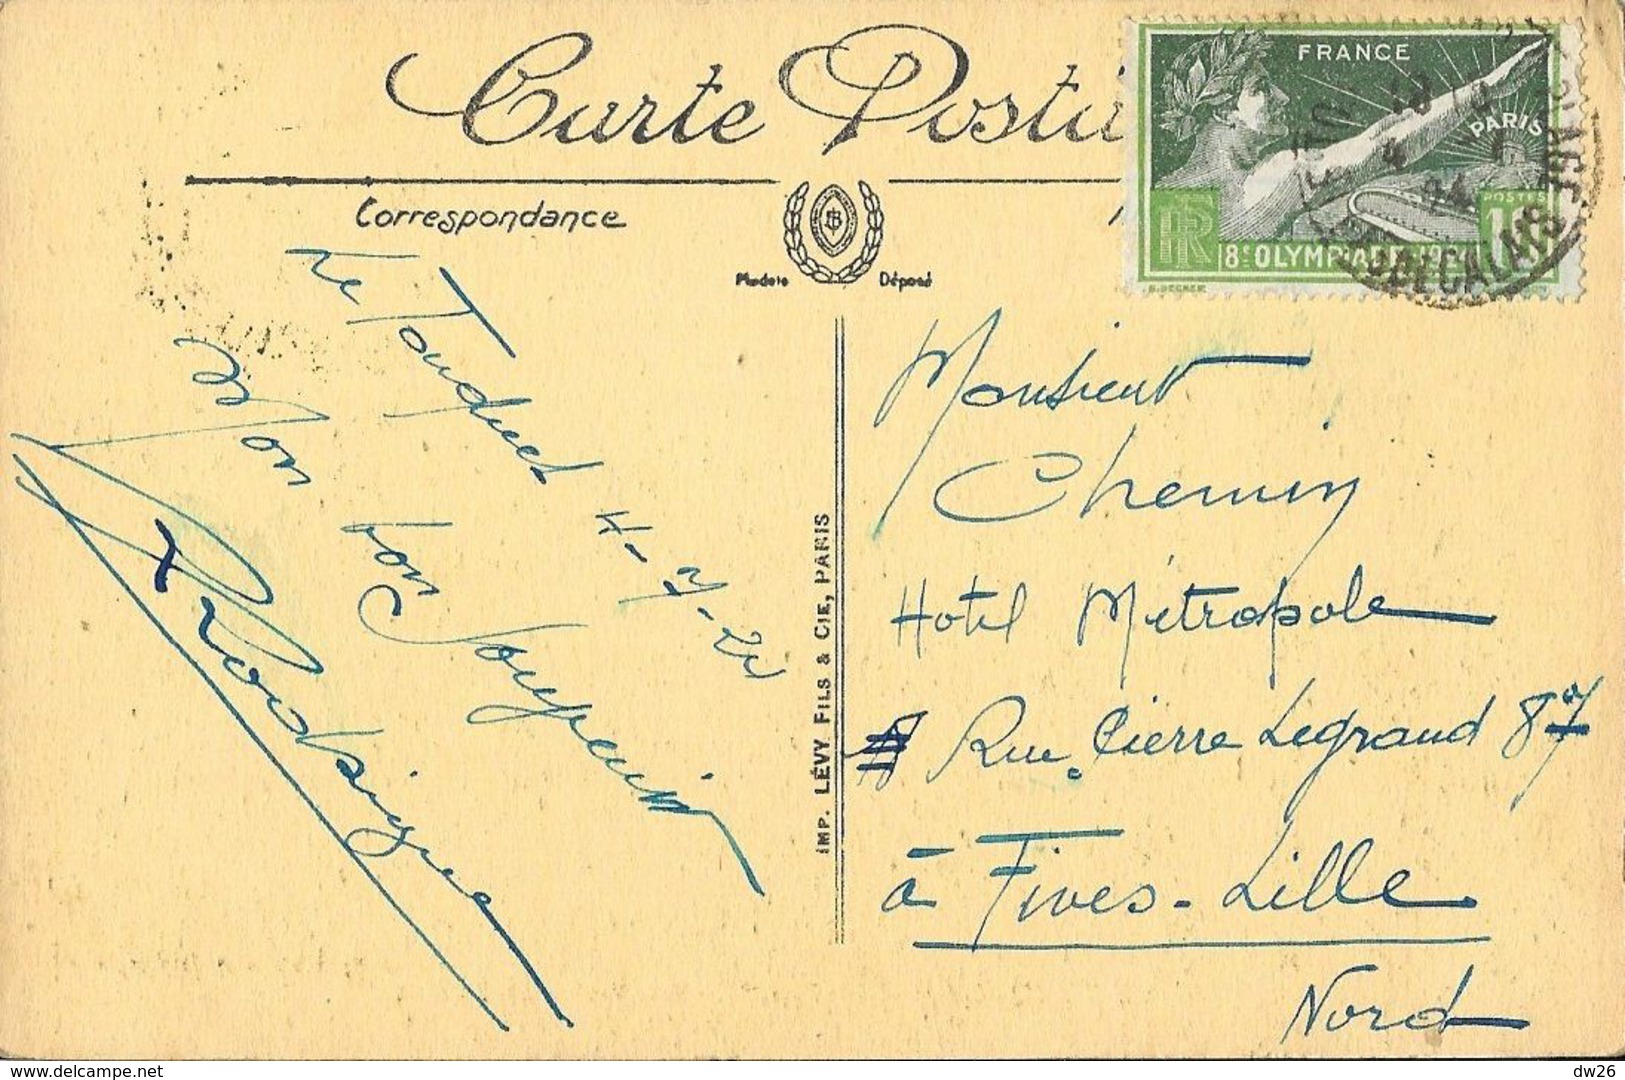 Carte Postale
Correspondance
Modèle Déposé
FRANCE
PARIS
POSTES
RF
8e OLYMPIADE
10
PAS DE CALAIS
PLAGE
Le Touquet 4-7-24
Mon bon Souvenir
IMP. LÉVY FILS & CIE, PARIS
Monsieur
Chemin
Hotel Métropole
Rue Pierre Legrand 87
à Fives-Lille
Nord
delcampe.net
dw26